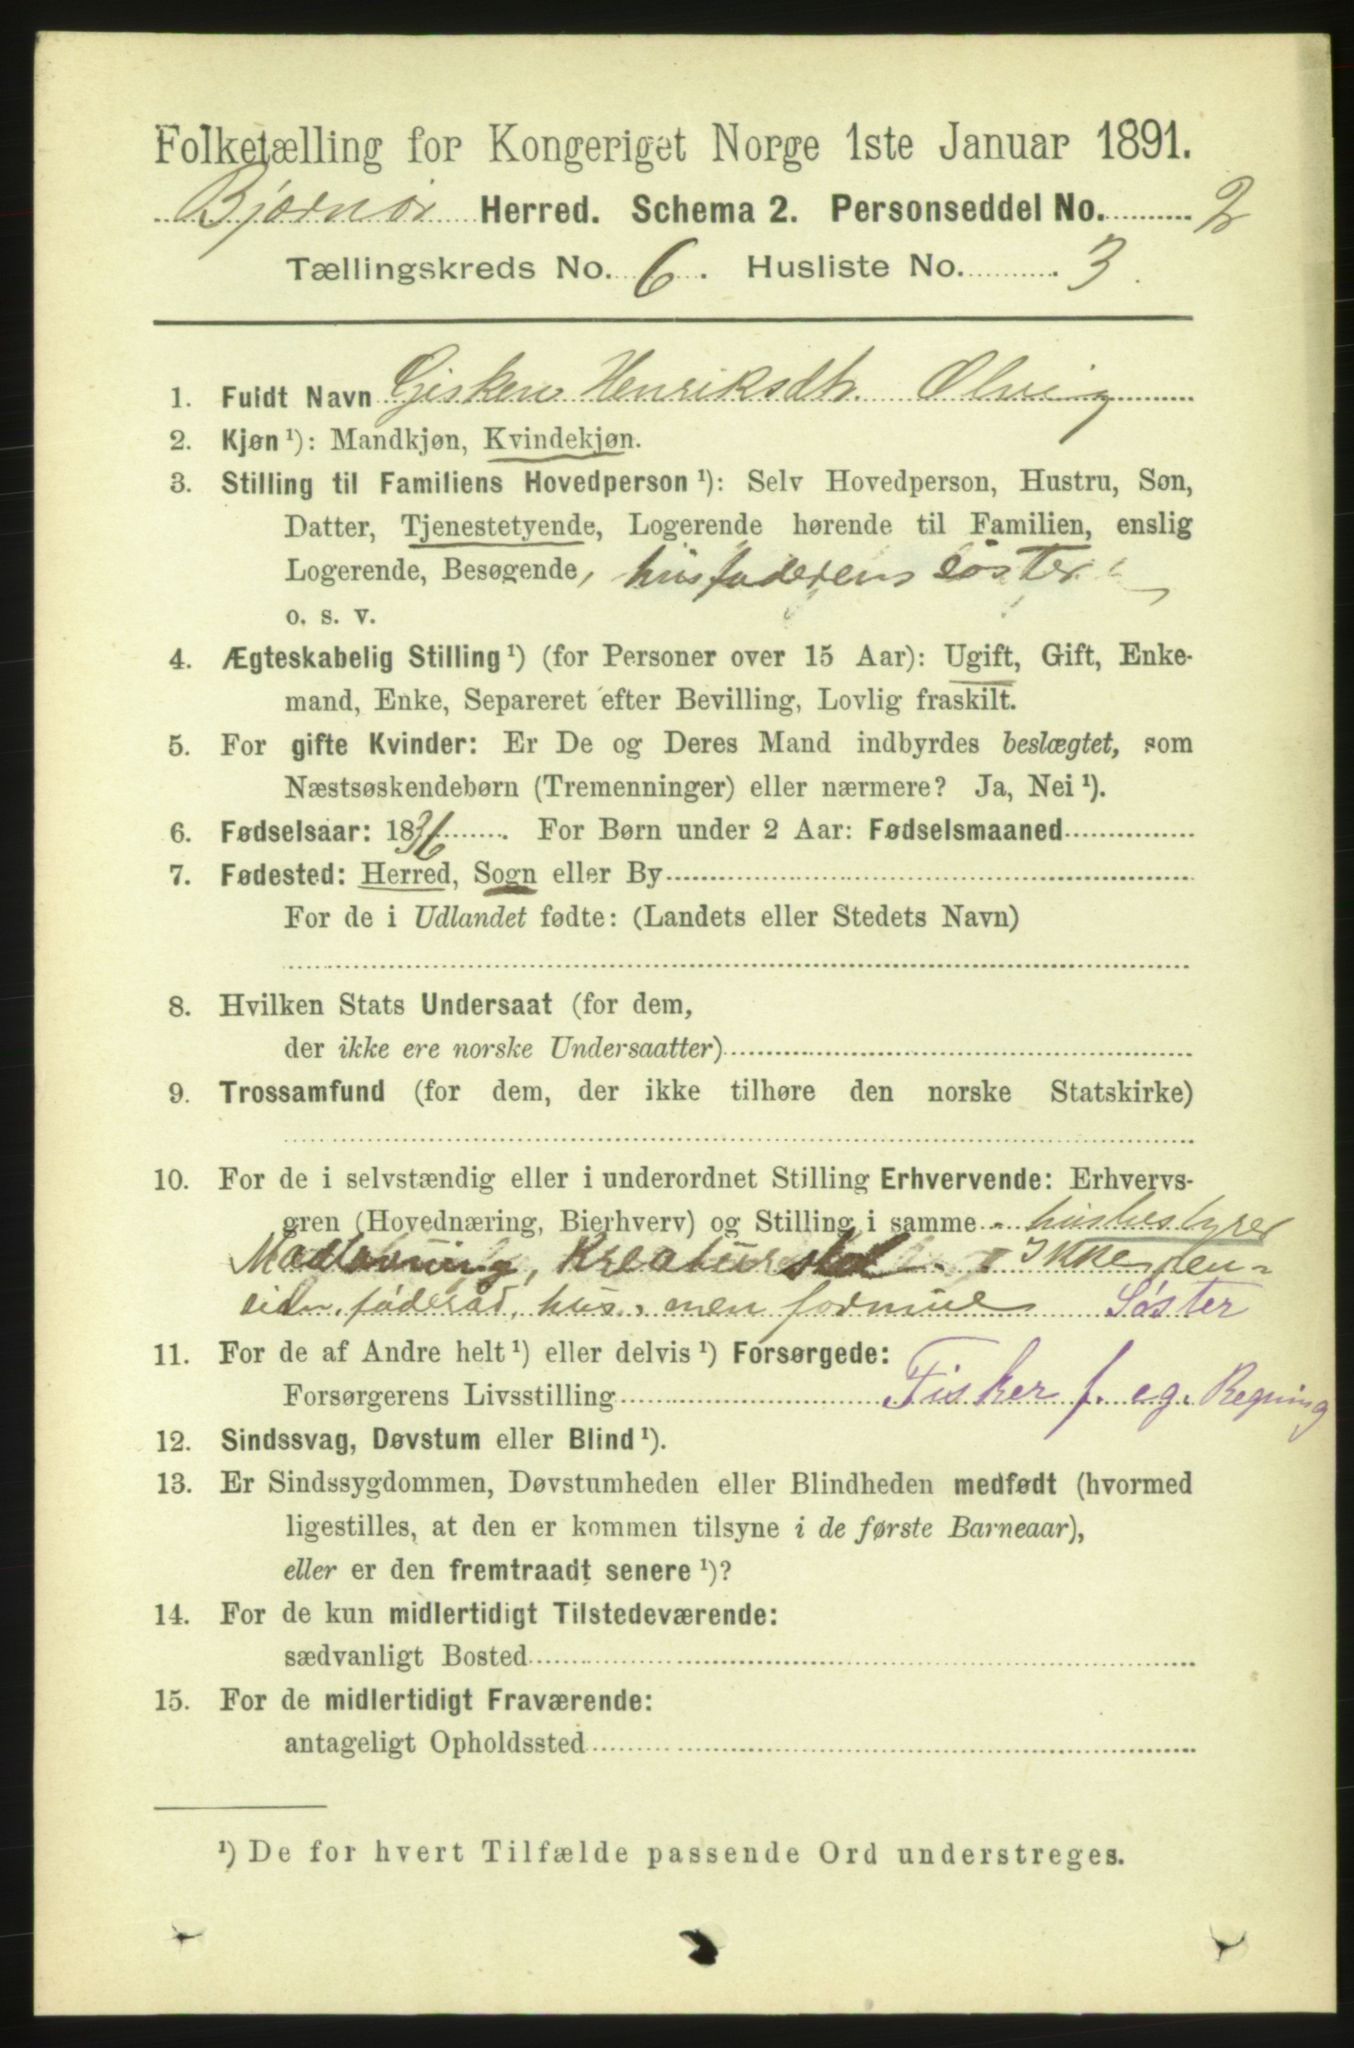 Folketælling for Kongeriget Norge 1ste Januar 1891.
Bjørnør Herred. Schema 2. Personseddel No. 2
Tællingskreds No. 6. Husliste No. 3.
1. Fuldt Navn Gjisken Henriksdtr.
2. Kjøn ¹): Mandkjøn, Kvindekjøn.
3. Stilling til Familiens Hovedperson ¹): Selv Hovedperson, Hustru, Søn,
Datter, Tjenestetyende, Logerende hørende til Familien, enslig
Logerende, Besøgende, husfaderens søster
o. s. v.
4. Ægteskabelig Stilling ¹) (for Personer over 15 Aar): Ugift, Gift, Enke-
mand, Enke, Separeret efter Bevilling, Lovlig fraskilt.
5. For gifte Kvinder: Er De og Deres Mand indbyrdes beslægtet, som
Næstsøskendebørn (Tremenninger) eller nærmere? Ja, Nei ¹).
6. Fødselsaar: 1836. For Børn under 2 Aar: Fødselsmaaned
7. Fødested: Herred, Sogn eller By
For de i Udlandet fødte: (Landets eller Stedets Navn)
8. Hvilken Stats Undersaat (for dem,
der ikke ere norske Undersaatter)
9. Trossamfund (for dem, der ikke tilhøre den norske Statskirke)
10. For de i selvstændig eller i underordnet Stilling Erhvervende: Erhvervs-
gren (Hovednæring, Bierhverv) og Stilling i samme husbestyrer
Madlavning, Kreaturstel Ikke
føderåd, hus, men formue Søster
11. For de af Andre helt ¹) eller delvis ¹) Forsørgede:
Forsørgerens Livsstilling Fisker f. eg. Regning
12. Sindssvag, Døvstum eller Blind ¹).
13. Er Sindssygdommen, Døvstumheden eller Blindheden medfødt (hvormed
ligestilles, at den er kommen tilsyne i de første Barneaar),
eller er den fremtraadt senere ¹)?
14. For de kun midlertidigt Tilstedeværende:
sædvanligt Bosted
15. For de midlertidigt Fraværende:
antageligt Opholdssted
¹) De for hvert Tilfælde passende Ord understreges.